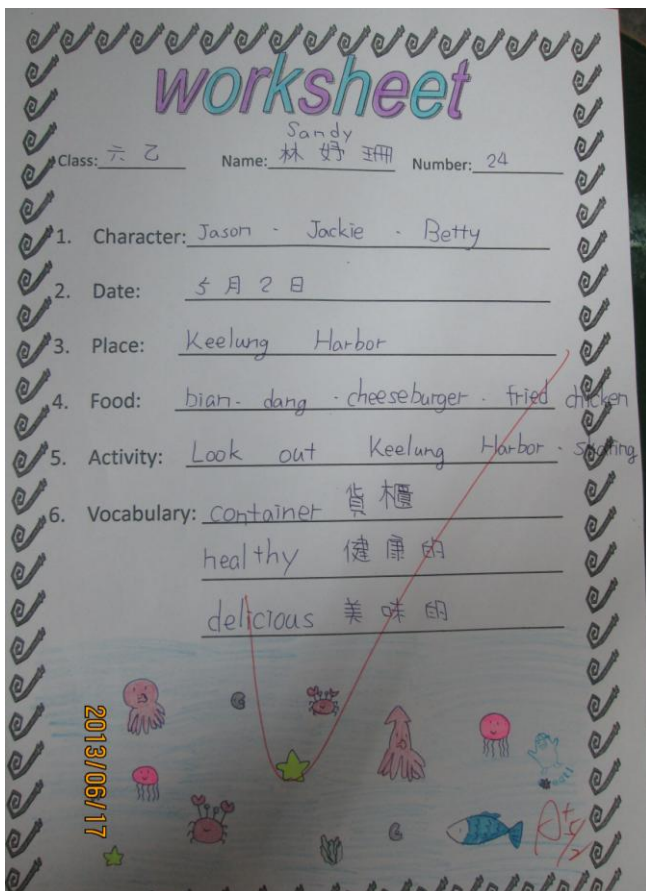 worksheet
Sandy
Class: 六 乙 Name: 林 妤 珊 Number: 24
1. Character: Jason - Jackie - Betty
2. Date: 5 月 2 日
3. Place: Keelung Harbor
4. Food: bian - dang - cheeseburger - fried chicken
5. Activity: Look out Keelung Harbor - skating
6. Vocabulary: container 貨櫃
healthy 健康的
delicious 美味的
2013/06/17
A+
5/2